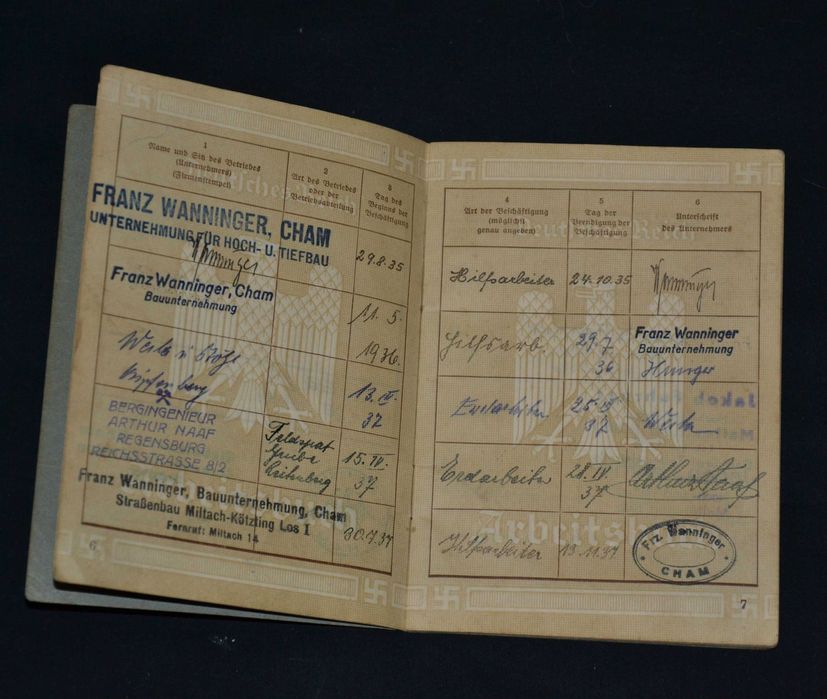 1
Name und Sitz des Betriebes
(Unternehmers)
(Firmenstempel)
2
Art des Betriebes
oder der
Betriebsabteilung
3
Tag des
Beginns der
Beschäftigung
FRANZ WANNINGER, CHAM
UNTERNEHMUNG FÜR HOCH- U. TIEFBAU
Wanninger
29.8.35
Franz Wanninger, Cham
Bauunternehmung
11. 5.
1936.
13. IV.
37
BERGINGENIEUR
ARTHUR NAAF
REGENSBURG
REICHSSTRASSE 8/2
Feldspat
Grube
15. IV.
37
Franz Wanninger, Bauunternehmung, Cham
Straßenbau Miltach-Kötzting Los I
Fernruf: Miltach 14
30.7.37
6
4
Art der Beschäftigung
(möglichst
genau angeben)
5
Tag der
Beendigung der
Beschäftigung
6
Unterschrift
des Unternehmers
Hilfsarbeiter 24.10.35 Wanninger
Hilfsarb. 29.7
36
Franz Wanninger
Bauunternehmung
Erdarbeiter
37
Erdarbeiter 28.IV
37
Arthur Naaf
Hilfsarbeiter 13.11.37
Frz. Wanninger
CHAM
Jakob
Arbeitsbuch
7